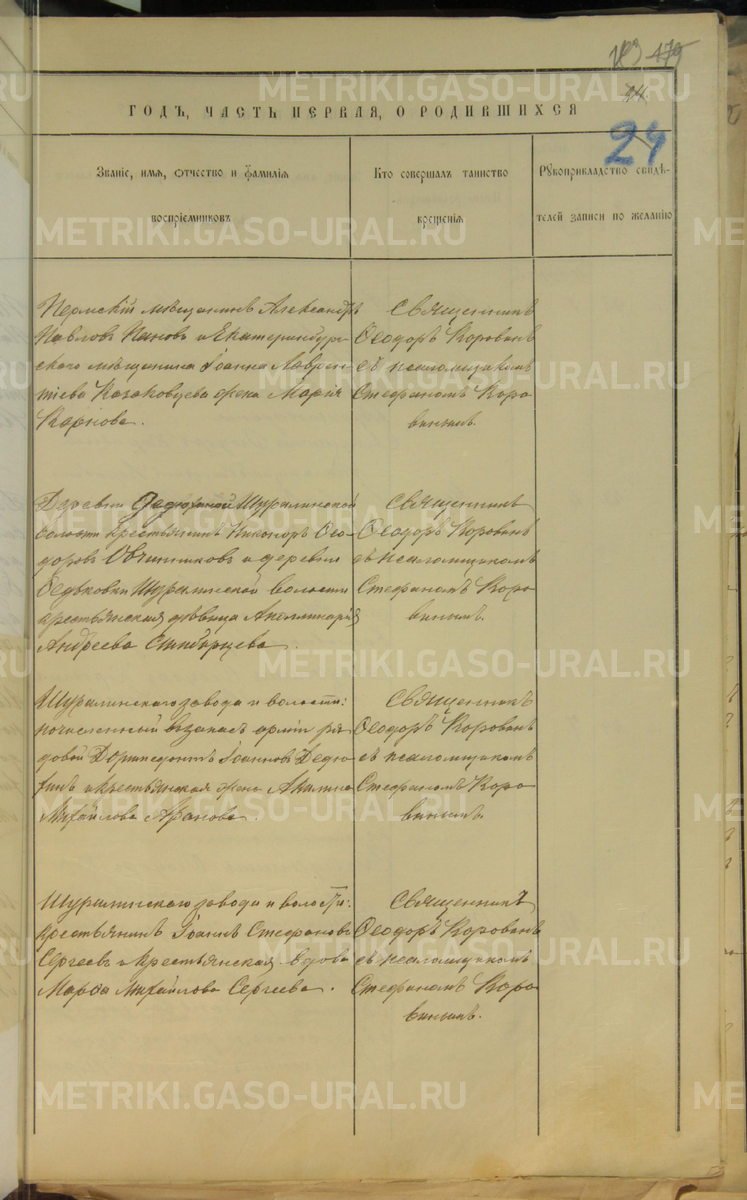 183 175
24
24
ГОДЪ, ЧАСТЬ ПЕРВАЯ, О РОДИВШИХСЯ
Званіе, имя, отчество и фамилія
воспріемниковъ
Кто совершалъ таинство
крещенія
Рукоприкладство свидѣ-
телей записи по желанію
Пермскій мѣщанинъ Александръ
Павловъ Пановъ и Екатеринбург-
скаго мѣщанина Іоанна Лаврен-
тіева Казаковцева жена Марія
Карпова.
Священникъ
Ѳеодоръ Коровинъ
съ псаломщикомъ
Стефаномъ Коро
винымъ.
Деревни Шуралинской
волости крестьянинъ Никаноръ Ѳео-
доровъ Овчинниковъ и деревни
Ѳедьковки Шуралинской волости
крестьянская дѣвица Апполинарія
Андреева
Священникъ
Ѳеодоръ Коровинъ
съ псаломщикомъ
Стефаномъ Коро
винымъ.
Шуралинскаго завода и волости:
зачисленный въ запасъ арміи ря-
довой Доримедонтъ Іоанновъ Дедю-
хинъ и крестьянская жена Акилина
Михайлова
Священникъ
Ѳеодоръ Коровинъ
съ псаломщикомъ
Стефаномъ Коро
винымъ.
Шуралинскаго завода и волости:
крестьянинъ Іоаннъ Стефановъ
Сергеевъ и крестьянская вдова
Марѳа Михайлова Сергеева.
Священникъ
Ѳеодоръ Коровинъ
съ псаломщикомъ
Стефаномъ Коро
винымъ.
METRIKI.GASO-URAL.RU